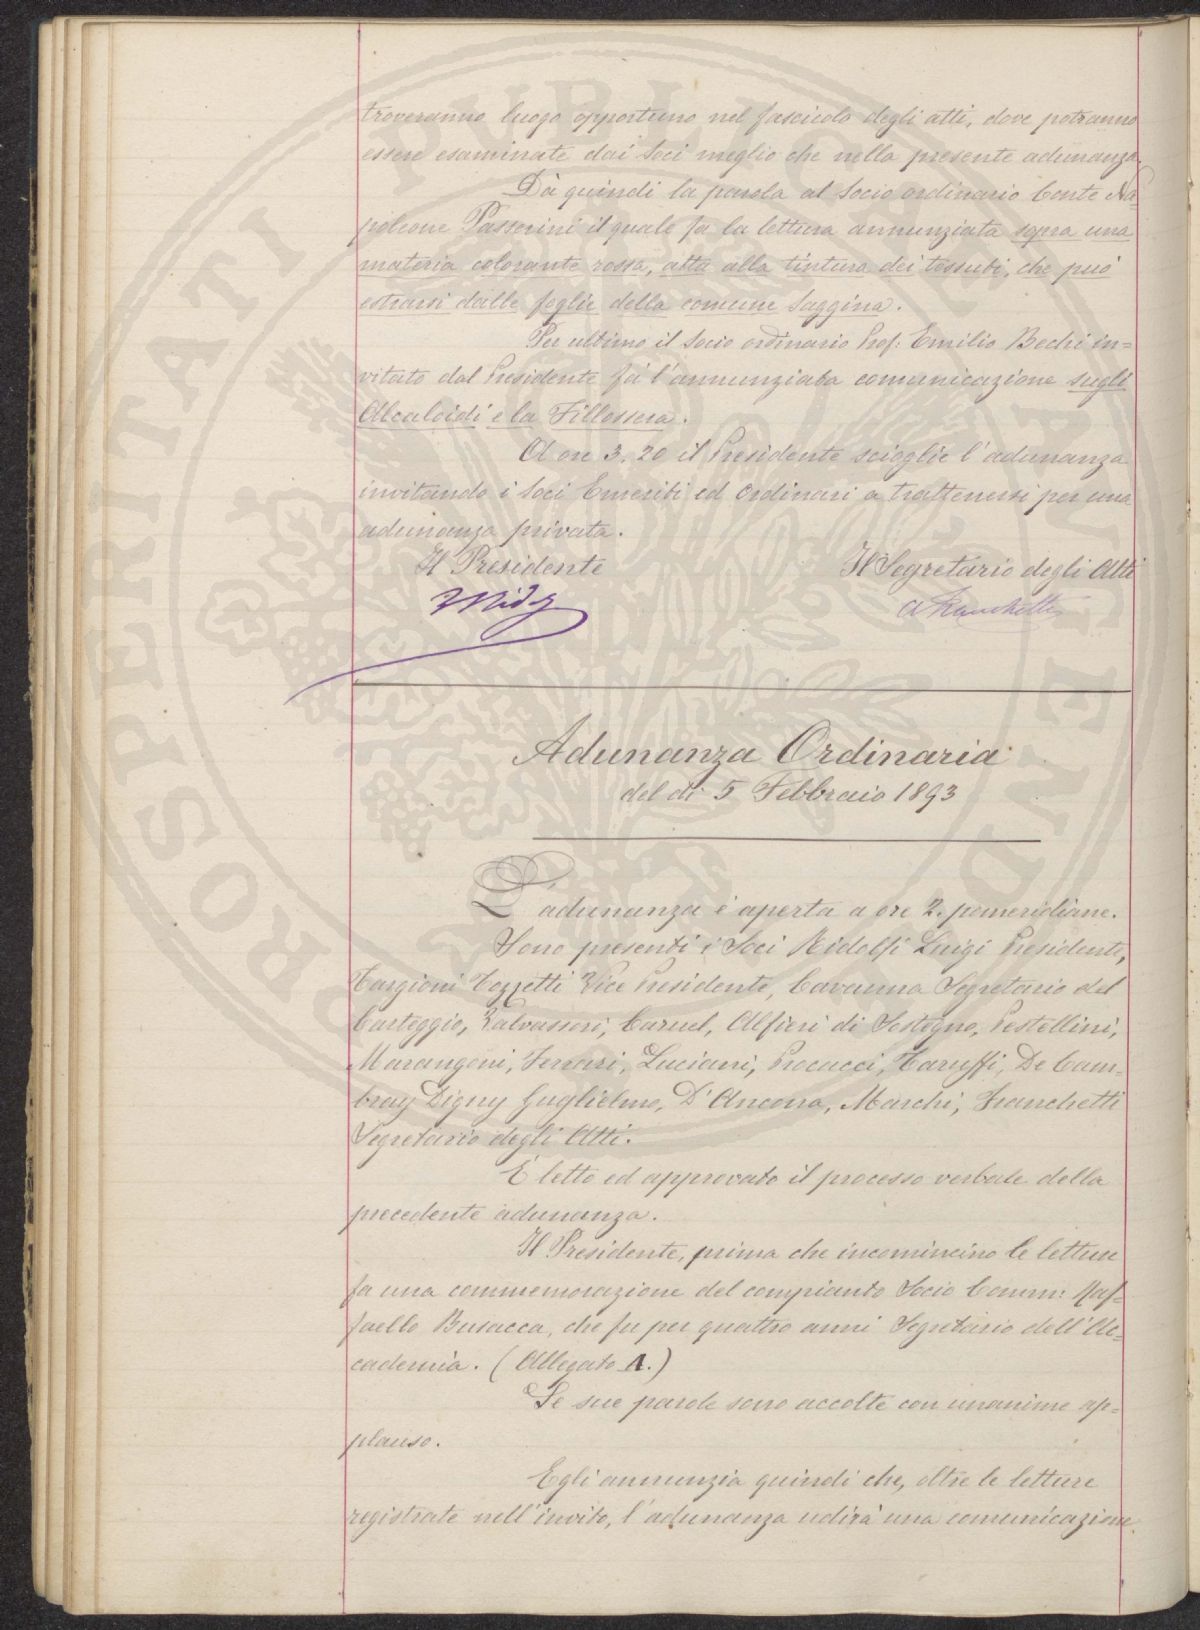 troveranno luogo opportuno nel fascicolo degli atti, dove potranno
essere esaminate dai Soci meglio che nella presente adunanza.
Dà quindi la parola al Socio ordinario Conte Na-
poleone Passerini il quale fa la lettura annunziata sopra una
materia colorante rossa, atta alla tintura dei tessuti, che può
estrarsi dalle foglie della comune Saggina.
Per ultimo il Socio ordinario Prof: Emilio Bechi in=
vitato dal Presidente fà l'annunziata comunicazione sugli
Alcaloidi e la Fillossera.
A ore 3.20 il Presidente scioglie l'adunanza
invitando i Soci Emeriti ed Ordinari a trattenersi per una
adunanza privata.
Il Presidente
Il Segretario degli Atti
A Franchetti
Adunanza Ordinaria
del dì 5 Febbraio 1893
L'adunanza è aperta a ore 2. pomeridiane.
Sono presenti i Soci Ridolfi Luigi Presidente,
Targioni Tozzetti Vice Presidente, Cavanna Segretario del
Carteggio, Valvassori, Caruel, Alfieri di Sostegno, Pestellini,
Marangoni, Ferrari, Luciani, Procacci, Taruffi, De Cam-
bray Digny Guglielmo, D'Ancona, Marchi, Franchetti
Segretario degli Atti.
È letto ed approvato il processo verbale della
precedente adunanza.
Il Presidente, prima che incomincino le letture
fa una commemorazione del compianto Socio Comm: Raf-
faello Busacca, che fu per quattro anni Segretario dell'Ac=
cademia. (Allegato A.)
Le sue parole sono accolte con unanime ap=
plauso.
Egli annunzia quindi che, oltre le letture
registrate nell'invito, l'adunanza udirà una comunicazione
PROSPERITATI PVBLICAE AVGENDAE